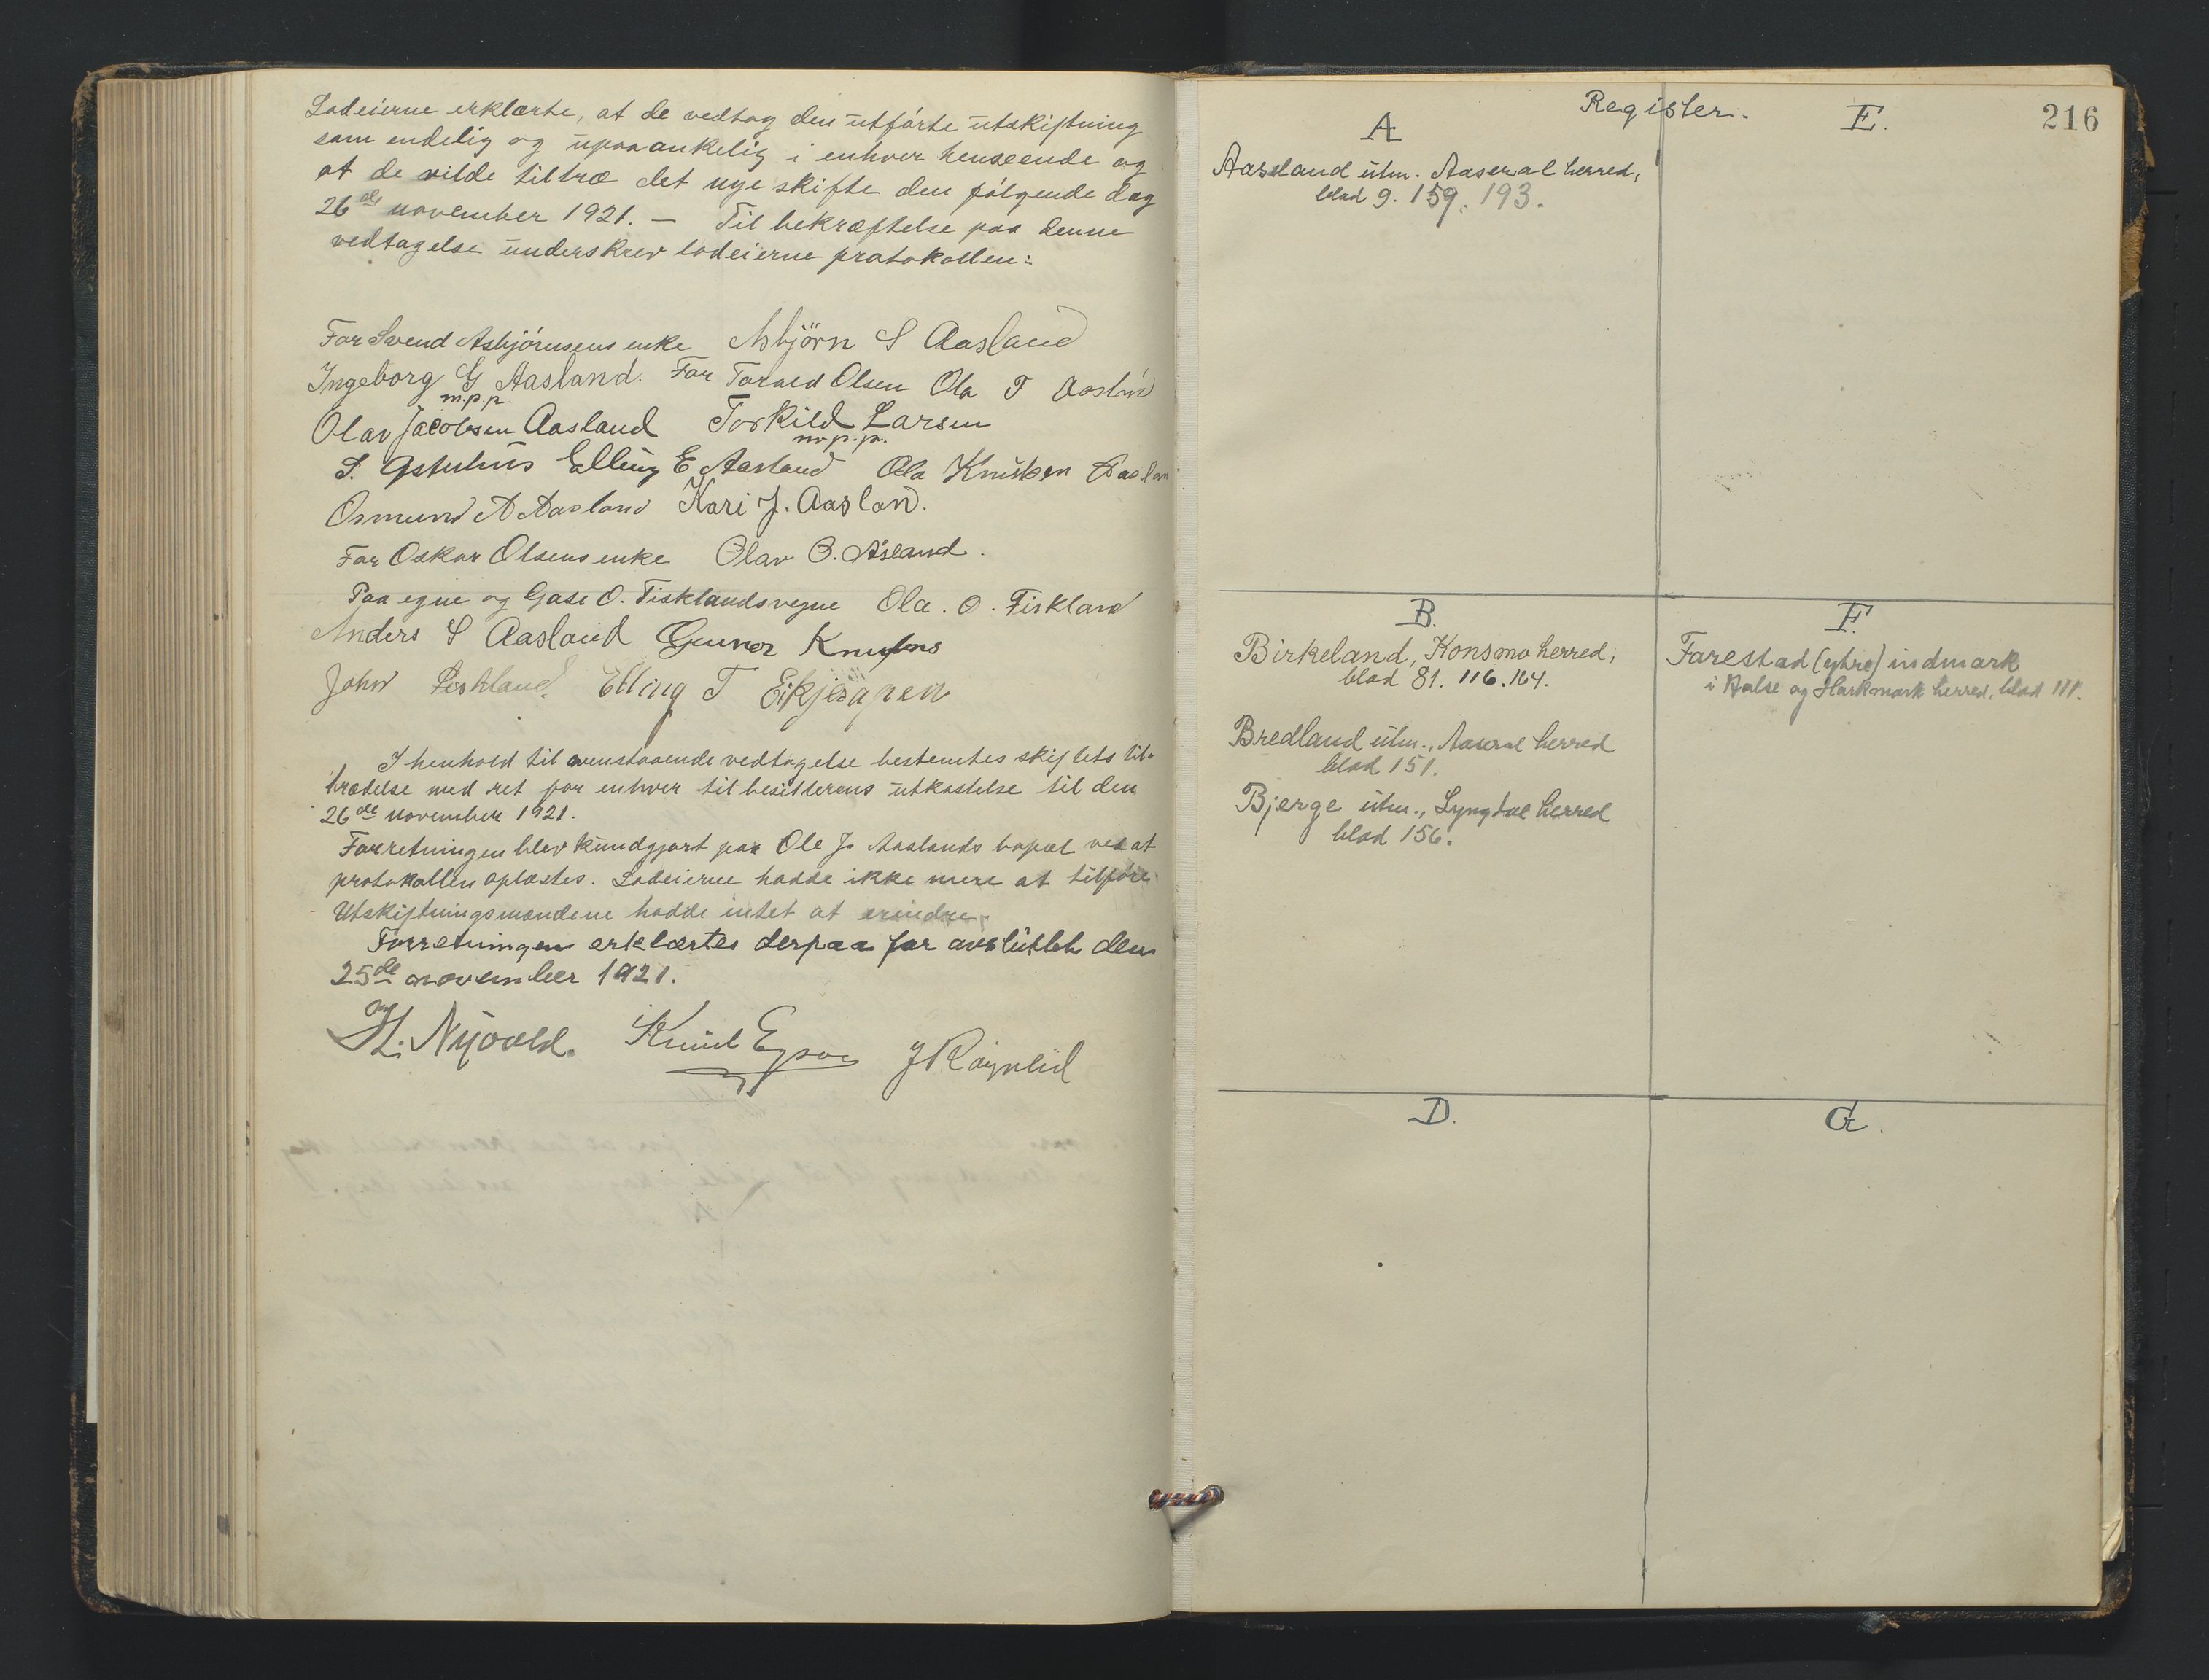 Lodeierne erklærte, at de vedtog den utførte utskiftning
som endelig og upaaankelig i enhver henseende og
at de vilde tiltræ det nye skifte den følgende dag
26de november 1921. — Til bekræftelse paa denne
vedtagelse underskrev lodeierne protokollen:
For Svend Asbjørnsens enke Asbjörn S Aasland
Ingeborg G Aasland. For Torald Olsen Ola T Aasland
m.p.p.
Olav Jacobsen Aasland Torkild Larsen
m.p.p.
S. Elling E Aasland Ola Knutsen Aaslan
Osmund A Aasland Kari J. Aasland.
For Oskar Olsens enke Olav O. Åsland.
Paa egne og Gase O. Fisklandsvegne Ola. O. Fiskland
Anders S Aasland Gunver Knutsns
John Elling T Eikjerapen
I henhold til ovenstaaende vedtagelse bestemtes skiftets til-
trædelse med ret for enhver til besitterens utkastelse til den
26de november 1921.
Forretningen blev kundgjort paa Ole J. Aaslands bopæl ved at
protokollen oplæstes. Lodeierne hadde ikke mere at tilføre.
Utskiftningsmændene hadde intet at erindre.
Forretningen erklærtes derpaa for avsluttet den
25de november 1921.
H. Nyvold. Knut J Røynlid
216
Register.
A
Aasland utm. Aaseral herred,
blad 9. 159. 193.
E.
B.
Birkeland, Konsmo herred,
blad 81. 116. 164.
Bredland utm., Aaseral herred
blad 151.
Bjerge utm., Lyngdal herred
blad 156.
F.
Farestad (ytre) indmark
i Halse og Harkmark herred, blad 111.
D.
G.